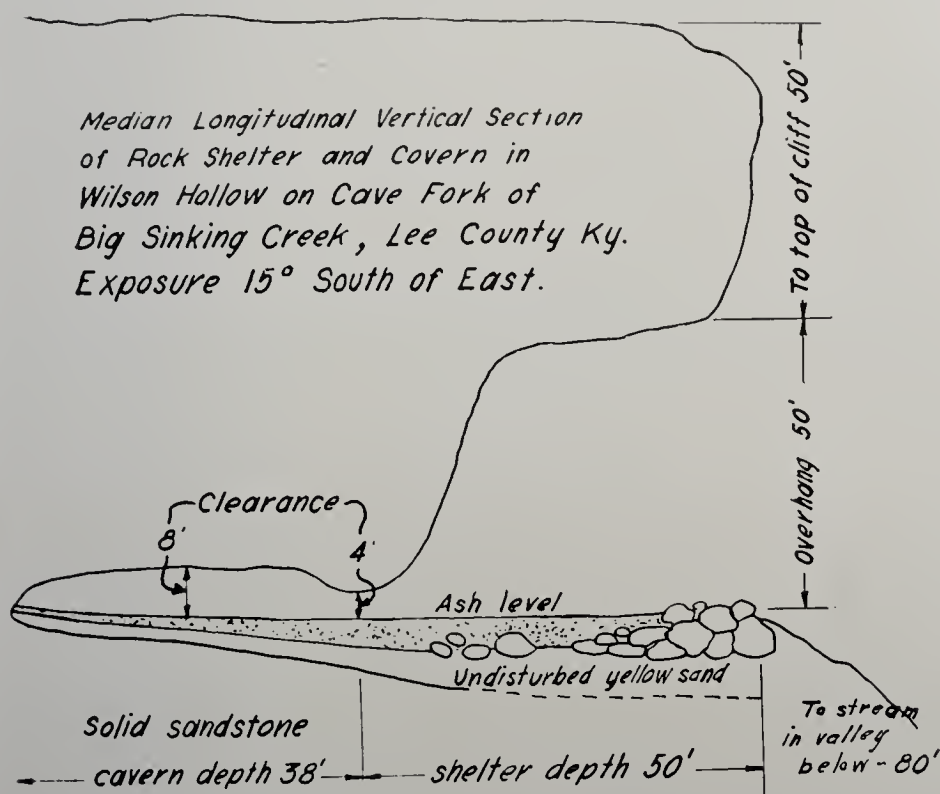 Median Longitudinal Vertical Section
of Rock Shelter and Covern in
Wilson Hollow on Cave Fork of
Big Sinking Creek, Lee County Ky.
Exposure 15° South of East.
To top of cliff 50'
Overhang 50'
Clearance
8'
4'
Ash level
Undisturbed yellow sand
Solid sandstone
cavern depth 38'
shelter depth 50'
To stream
in valley
below - 80'